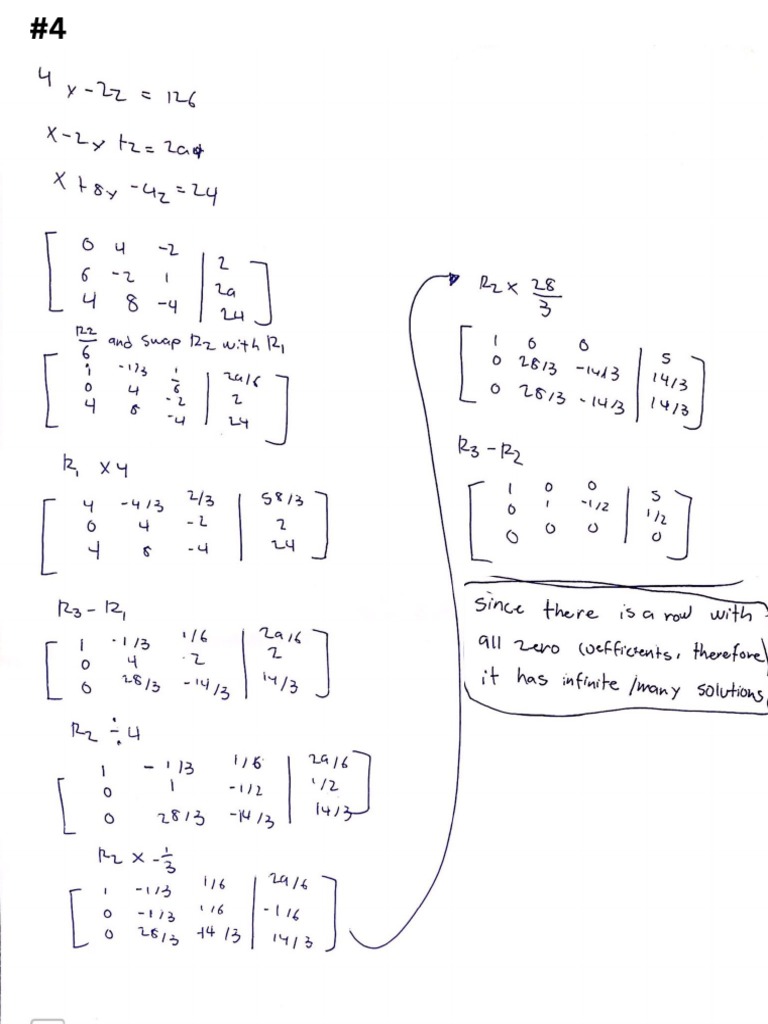 #4
4y-2z = 126
x-2y+z = 29
x+8y-4z = 24
[ 0 4 -2 | 2 ]
[ 6 -2 1 | 29 ]
[ 4 8 -4 | 24 ]
R2/6 and swap R2 with R1
[ 1 -1/3 1/6 | 29/6 ]
[ 0 4 -2 | 2 ]
[ 4 8 -4 | 24 ]
R1 x4
[ 4 -4/3 2/3 | 58/3 ]
[ 0 4 -2 | 2 ]
[ 4 8 -4 | 24 ]
R3-R1
[ 1 -1/3 1/6 | 29/6 ]
[ 0 4 -2 | 2 ]
[ 0 28/3 -14/3 | 14/3 ]
R2 ÷4
[ 1 -1/3 1/6 | 29/6 ]
[ 0 1 -1/2 | 1/2 ]
[ 0 28/3 -14/3 | 14/3 ]
R2 x -1/3
[ 1 -1/3 1/6 | 29/6 ]
[ 0 -1/3 1/6 | -1/6 ]
[ 0 28/3 -14/3 | 14/3 ]
R2 x 28/3
[ 1 0 0 | 5 ]
[ 0 28/3 -14/3 | 14/3 ]
[ 0 28/3 -14/3 | 14/3 ]
R3-R2
[ 1 0 0 | 5 ]
[ 0 1 -1/2 | 1/2 ]
[ 0 0 0 | 0 ]
Since there is a row with
all zero coefficients, therefore
it has infinite/many solutions